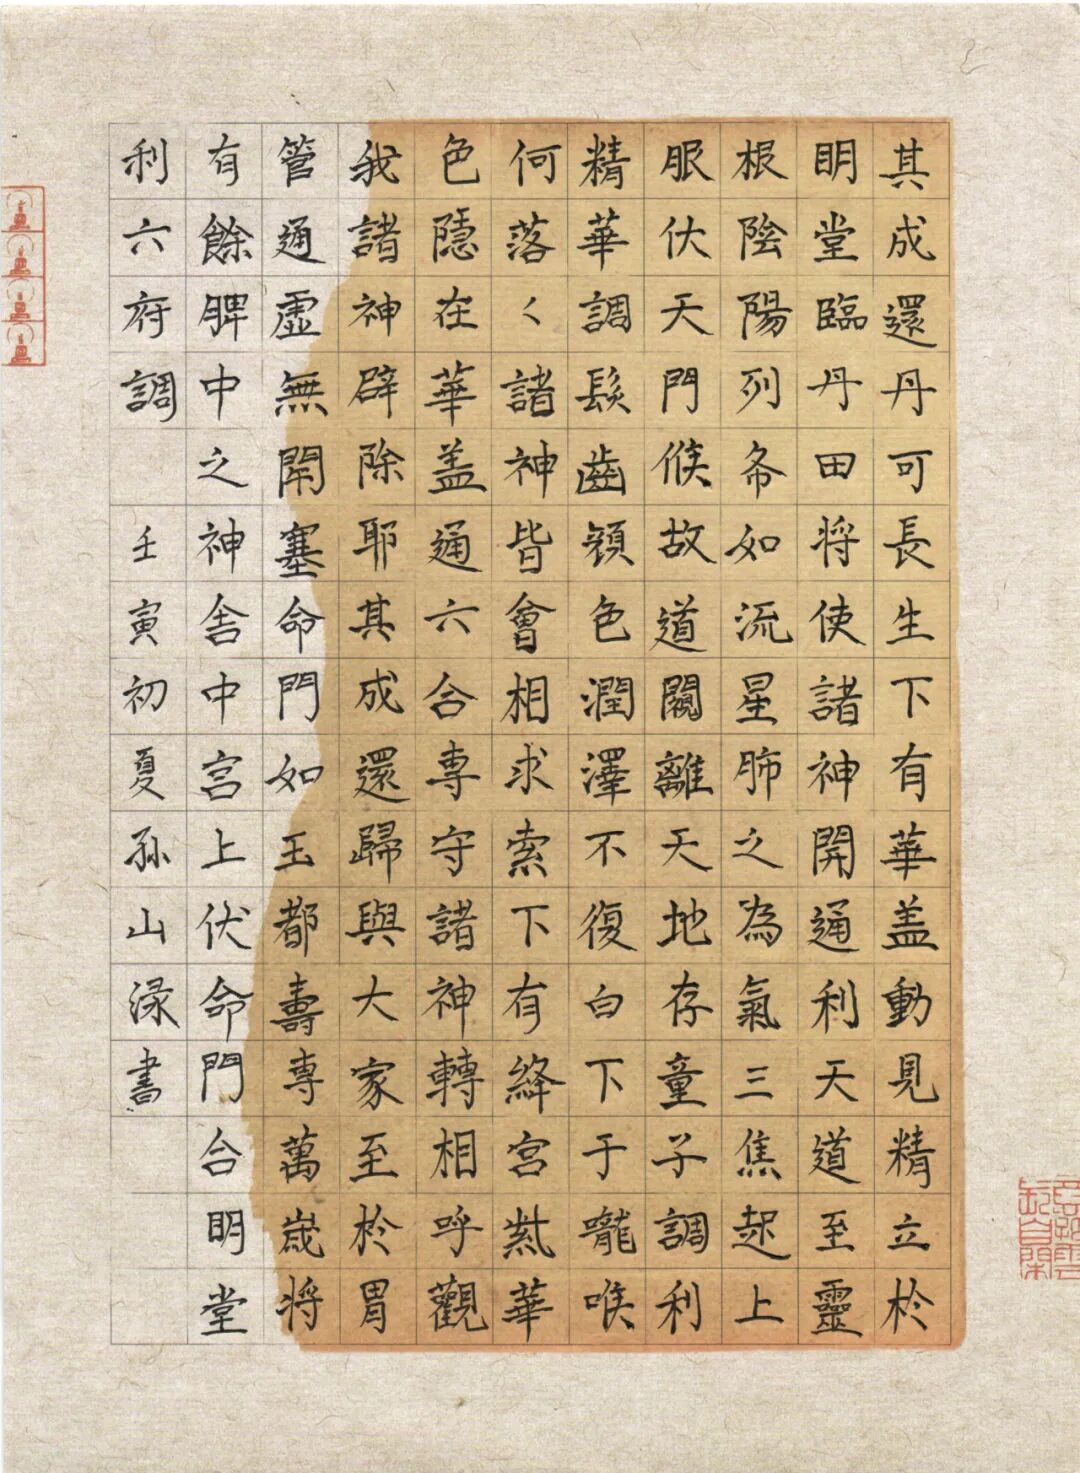 其成還丹可長生下有華盖動見精立於
明堂臨丹田将使諸神開通利天道至靈
根陰陽列布如流星肺之為氣三焦起上
服伏天門候故道闚離天地存童子調利
精華調髮齒顏色潤澤不復白下于嚨喉
何落々諸神皆會相求索下有絳宮紫華
色隱在華盖通六合専守諸神轉相呼觀
我諸神辟除耶其成還歸與大家至於胃
管通虛無閇塞命門如玉都壽専萬歲将
有餘脾中之神舍中宮上伏命門合明堂
利六府調 壬寅初夏孫山淥書